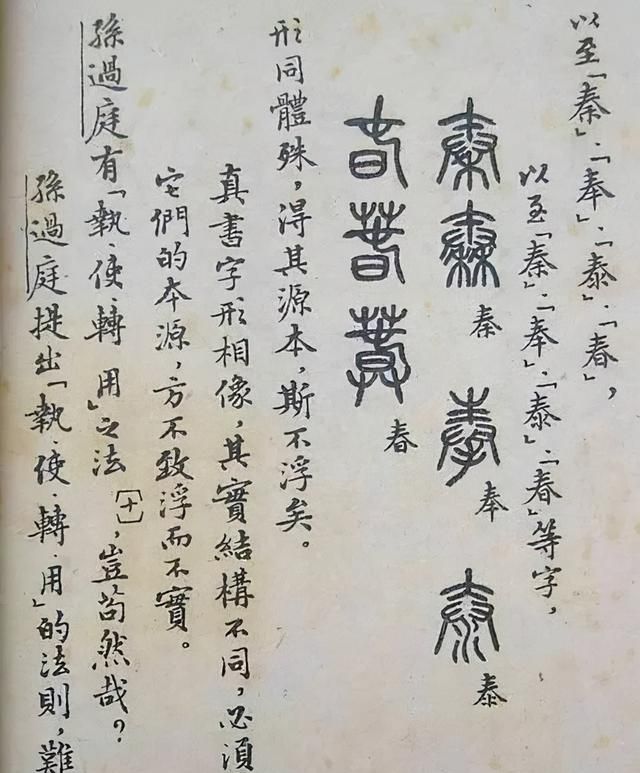 以至「秦」、「奉」、「泰」、「春」，
以至「秦」、「奉」、「泰」、「春」等字，
秦
奉
泰
春
形同體殊，得其源本，斯不浮矣。
真書字形相像，其實結構不同，必須
它們的本源，方不致浮而不實。
孫過庭有「執、使、轉、用」之法〔十〕，豈苟然哉？
孫過庭提出「執、使、轉、用」的法則，難